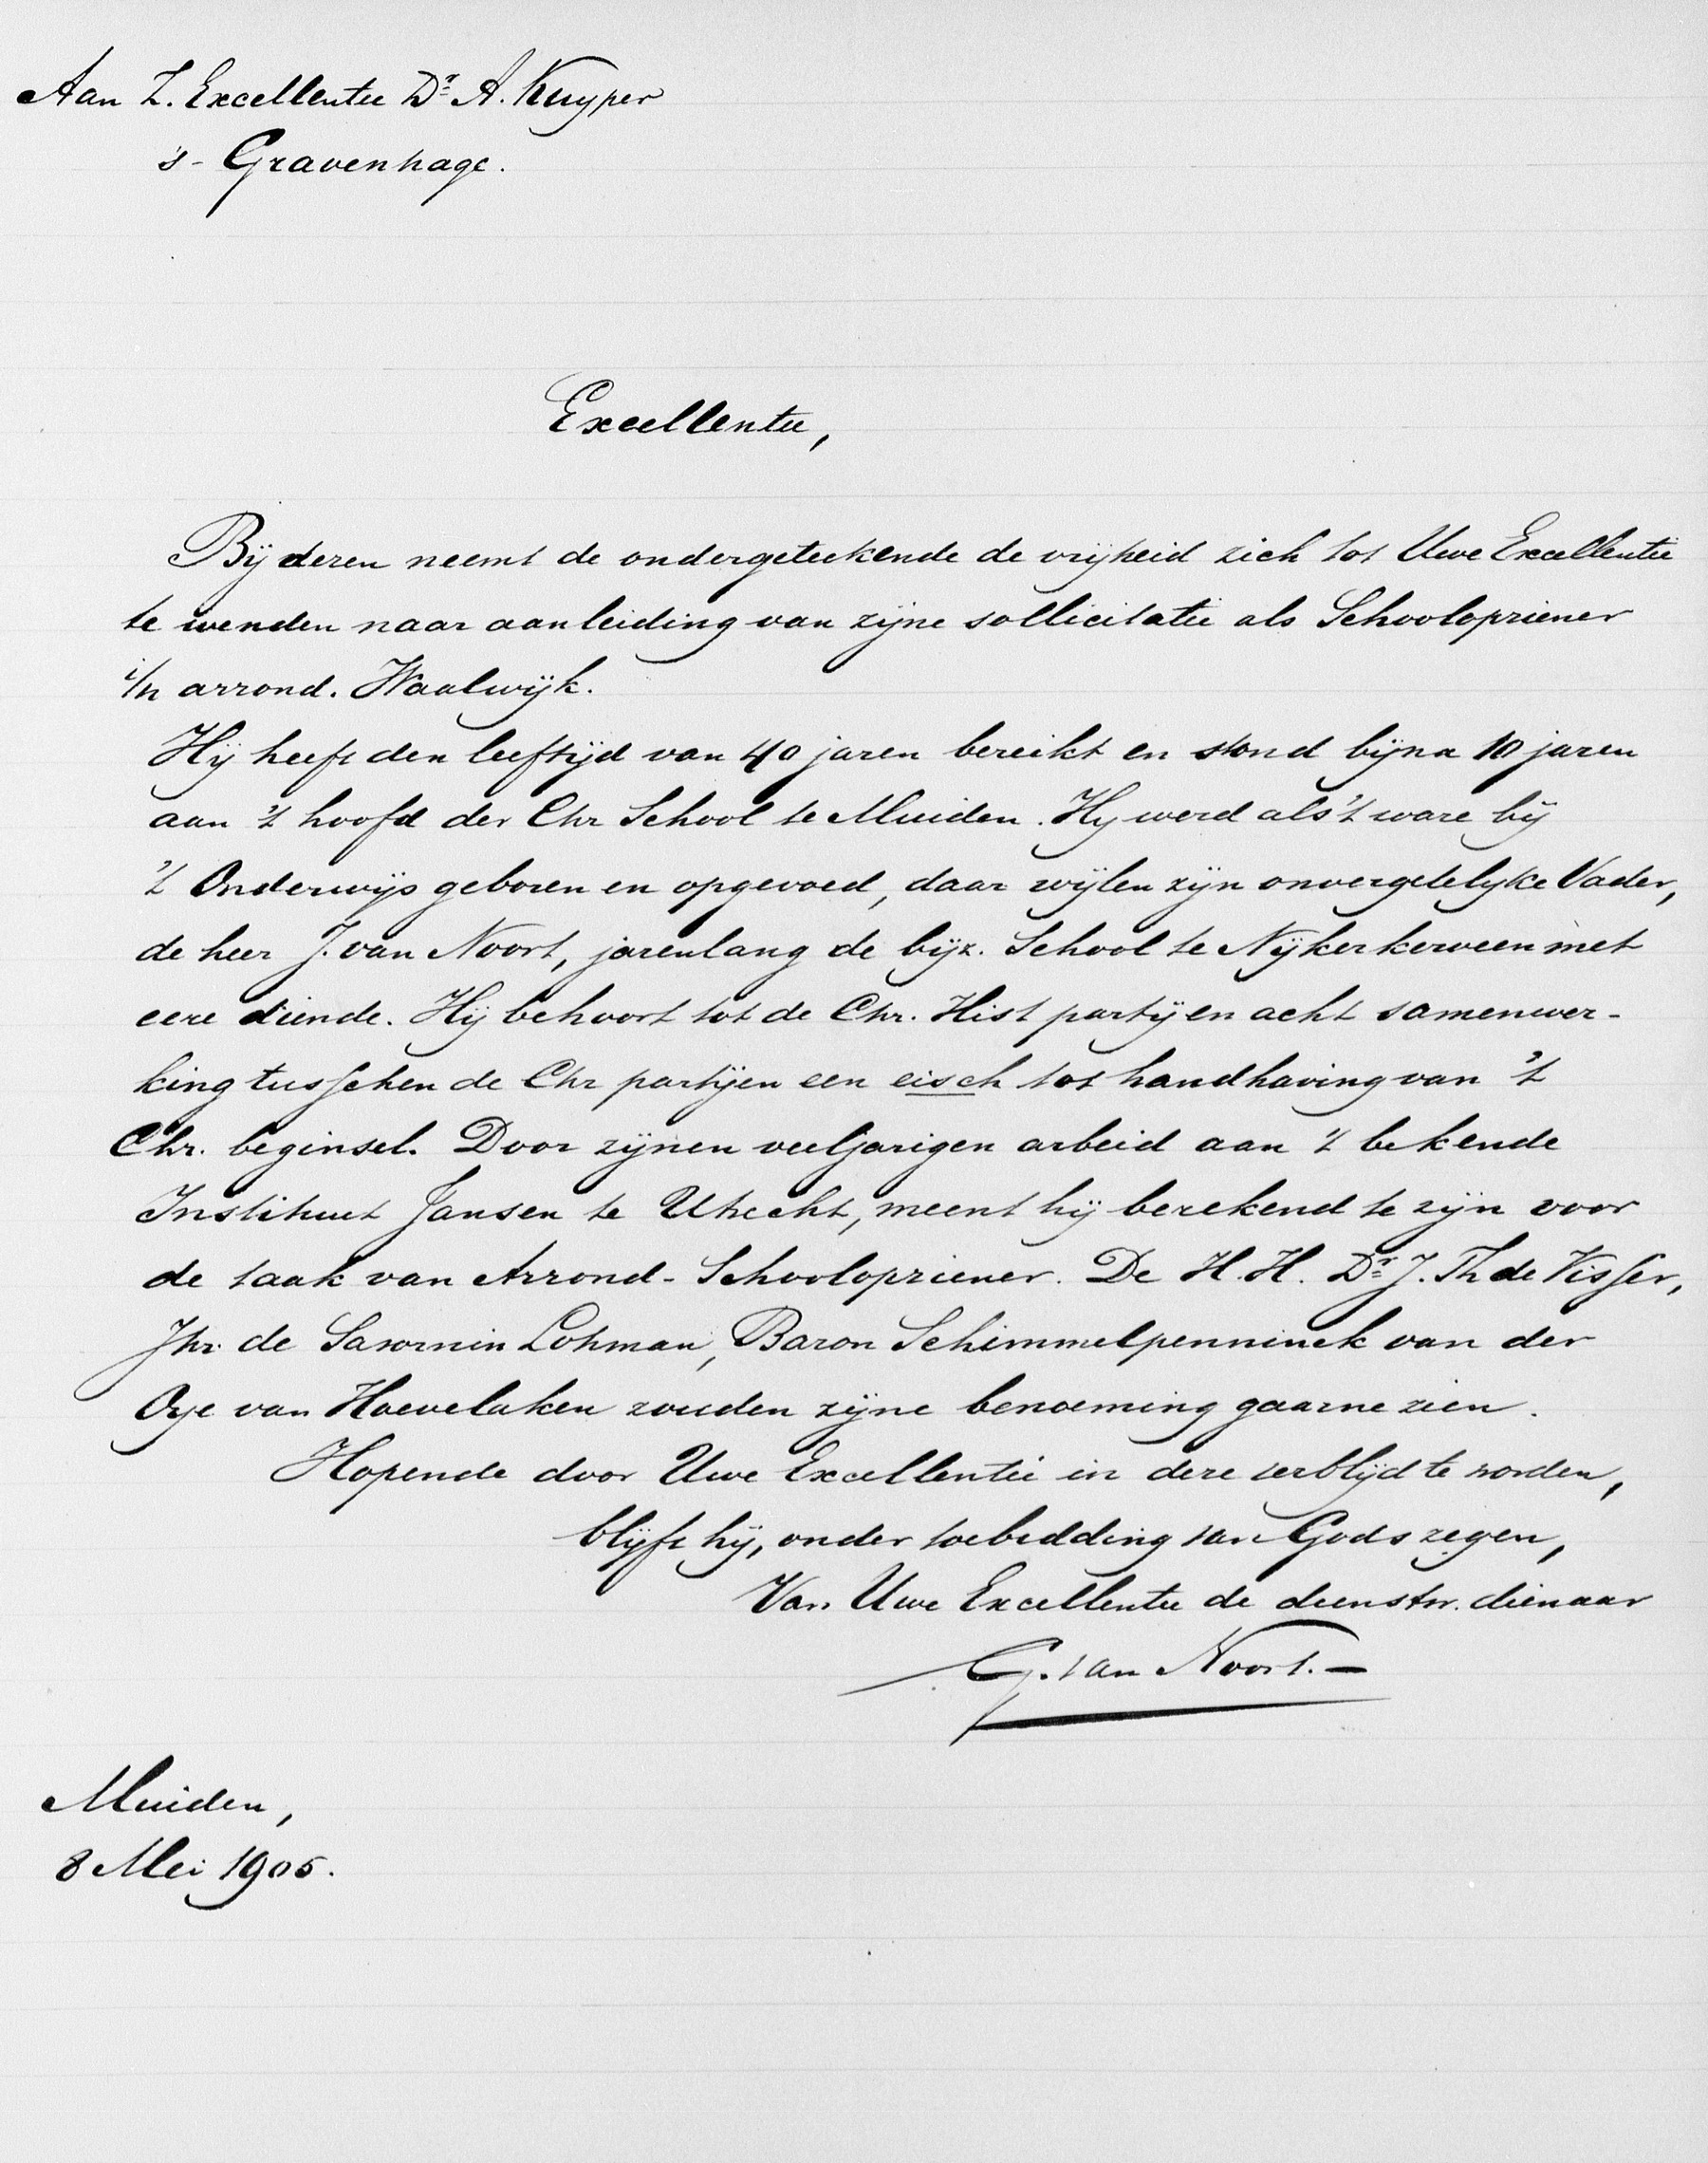 Aan Z. Excellentie Dr. A. Kuyper
's-Gravenhage.
Excellentie,
Bij dezen neemt de ondergeteekende de vrijheid zich tot Uwe Excellentie
te wenden naar aanleiding van zijne sollicitatie als Schoolopziener
i/h arrond. Waalwijk.
Hij heeft den leeftijd van 40 jaren bereikt en stond bijna 10 jaren
aan 't hoofd der Chr School te Muiden. Hij werd als 't ware bij
't Onderwijs geboren en opgevoed, daar wijlen zijn onvergetelijke Vader,
de heer J. van Noort, jarenlang de bijz. School te Nijkerkerveen met
eere diende. Hij behoort tot de Chr. Hist partij en acht samenwer-
king tusschen de Chr partijen een eisch tot handhaving van 't
Chr. beginsel. Door zijnen veeljarigen arbeid aan 't bekende
Instituut Jansen te Utrecht, meent hij berekend te zijn voor
de taak van Arrond-Schoolopziener. De H.H. Dr. J. Th de Visser,
Jhr. de Savornin Lohman, Baron Schimmelpenninck van der
Oye van Hoevelaken zouden zijne benoeming gaarne zien.
Hopende door Uwe Excellentie in deze verblijd te worden,
blijft hij, onder toebidding van Gods zegen,
Van Uwe Excellentie de dienstw. dienaar
G. van Noort.-
Muiden,
8 Mei 1905.